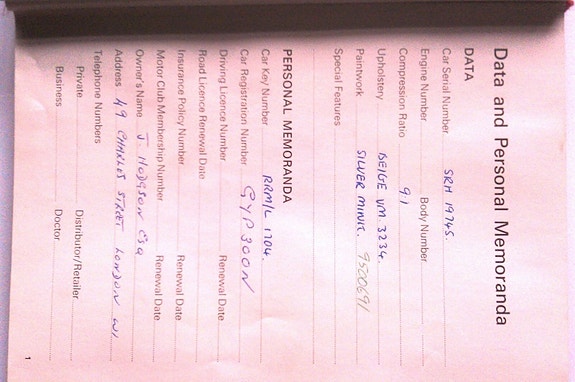 Data and Personal Memoranda
DATA
Car Serial Number SRH 19745.
Engine Number Body Number
Compression Ratio 9.1
Upholstery BEIGE VM. 3234.
Paintwork SILVER MINK. 9520691
Special Features
PERSONAL MEMORANDA
Car Key Number RRM/L 1704.
Car Registration Number GYP 300N
Driving Licence Number Renewal Date
Road Licence Renewal Date
Insurance Policy Number Renewal Date
Motor Club Membership Number Renewal Date
Owner's Name J. HODGSON ESQ
Address 49 CHARLES STREET LONDON W1
Telephone Numbers
Private Distributor/Retailer
Business Doctor
1